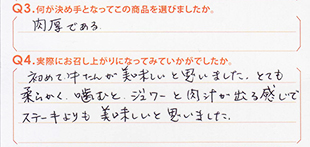 Q3.何が決め手となってこの商品を選びましたか。
肉厚である
Q4.実際にお召し上がりになってみていかがでしたか。
初めて牛たんが美味しいと思いました。とても
柔らかく、噛むと、ジュワーと肉汁が出る感じで
ステーキよりも美味しいと思いました。